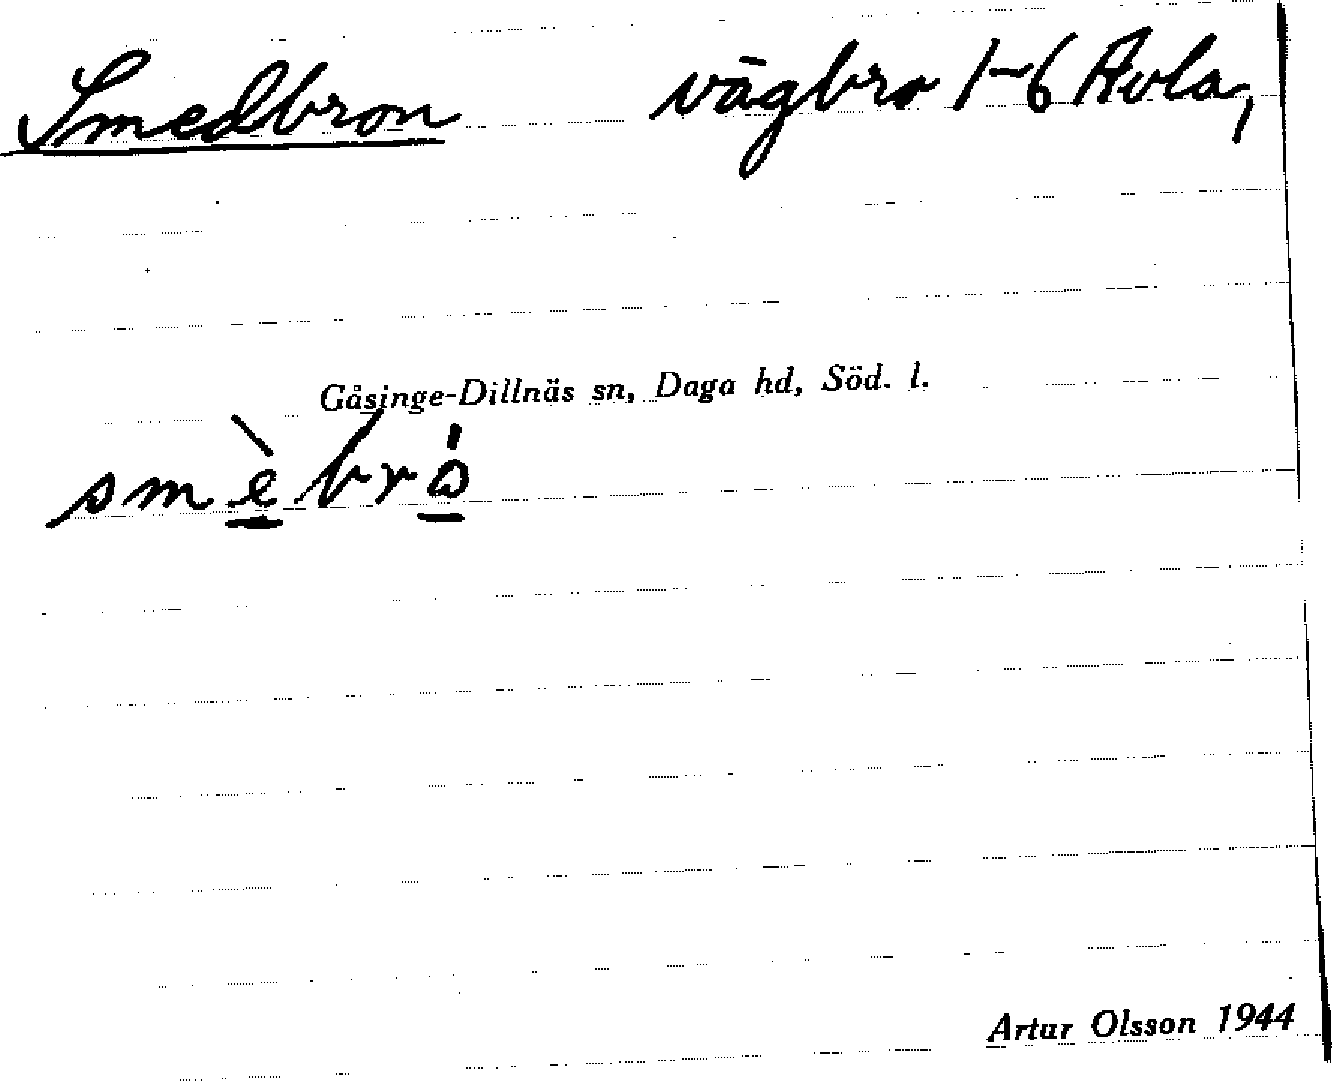 Smedbron vägbro 1-6 Avla,
Gåsinge-Dillnäs sn, Daga hd, Söd. l.
smèbró
Artur Olsson 1944